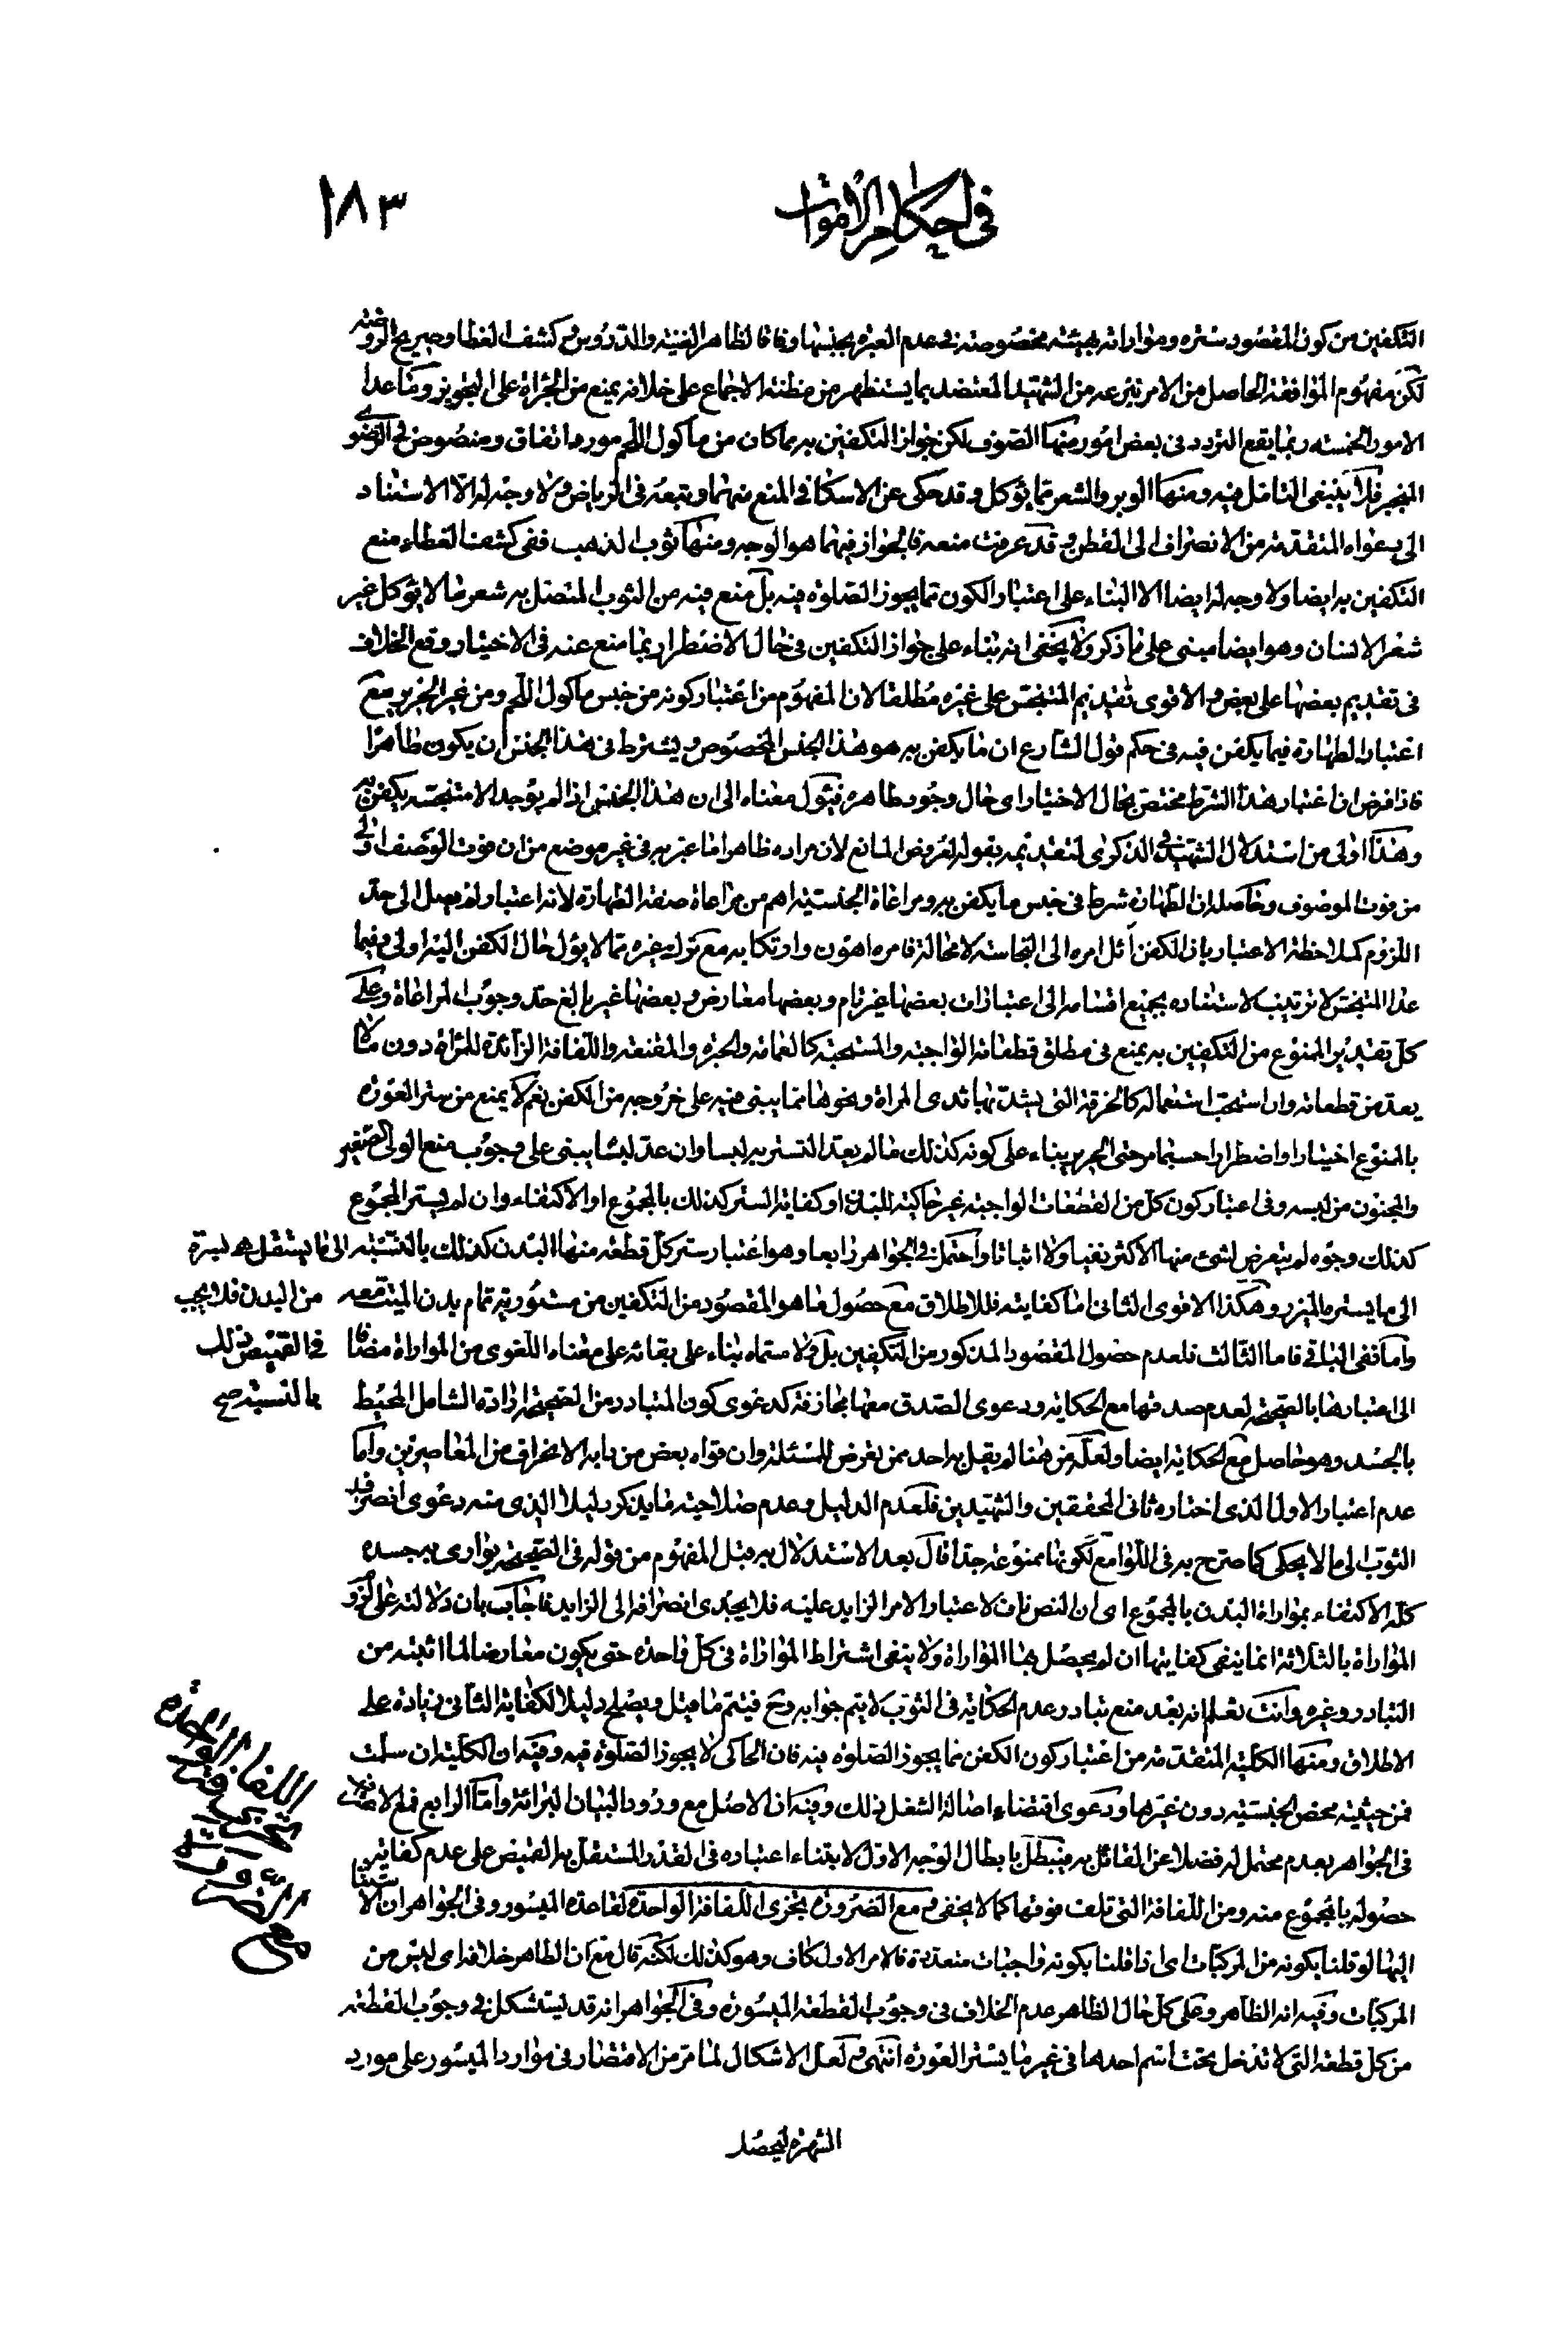 في احكام الاموات
١٨٣
التكفين من كون المقصود ستره ومواراته بهيئة مخصوصة في عدم العبرة بجنسها وفاقا لظاهر الغنية والدروس وكشف الغطا وصريح الروضة
لكن مفهوم الموافقة الحاصل من الامر بنزعه من الشهيد المعتضد بما يستظهر من مظنة الاجماع على خلافه يمنع من الجرأة على التجويز وما عدا
الامور الخمسة ربما يقع التردد في بعض امور منها الصوف لكن جواز التكفين به مما كان من ماكول اللحم مورد اتفاق ومنصوص في الرضوي
المنجبر فلا ينبغي التامل فيه ومنها الوبر والشعر مما يؤكل وقد حكى عن الاسكافي المنع منهما وتبعه في الرياض ولا وجه له الا الاستناد
الى دعواه المتقدمة من الانصراف الى القطن وقد عرفت منعه فالجواز فيهما هو الوجه ومنها ثوب الذهب ففي كشف الغطاء منع
التكفين به ايضا ولا وجه له ايضا الا البناء على اعتبار الكون مما يجوز الصلوة فيه بل منع فيه من الثوب المتصل به شعر ما لا يؤكل غير
شعر الانسان وهو ايضا مبني على ما ذكر ولا يخفى انه بناء على جواز التكفين في حال الاضطرار بما منع عنه في الاختيار وقع الخلاف
في تقديم بعضها على بعض والاقوى تقديم المتنجس على غيره مطلقا لان المفهوم من اعتبار كونه من جنس ماكول اللحم ومن غير الحرير مع
اعتبار الطهارة فيما يكفن فيه في حكم قول الشارع ان ما يكفن به هو هذا الجنس المخصوص ويشترط في هذا الجنس ان يكون طاهرا
فاذا فرض ان اعتبار هذا الشرط مختص بحال الاختيار اى حال وجود طاهره فيئول معناه الى ان هذا الجنس اذا لم يوجد الا متنجسه يكفن به
وهذا اولى من استدلال الشهيد في الذكرى لتقديمه بقوله لعروض المانع لان مراده ظاهرا ما عبر به في غير موضع من ان فوت الوصف اولى
من فوت الموصوف وحاصله ان الطهارة شرط في جنس ما يكفن به ومراعاة الجنسية اهم من مراعاة صفة الطهارة لانه اعتبار لم يصل الى حد
اللزوم كملاحظة الاعتبار بان الكفن آئل امره الى النجاسة لا محالة فامره اهون وارتكابه مع ترك غيره مما لا يؤل حال الكفن اليه اولى وفيما
عدا المتنجس لا ترتيب لاستناده بجميع اقسامه الى اعتبارات بعضها غير تام وبعضها معارض وبعضها غير بالغ حد وجوب المراعاة وعلى
كل تقدير الممنوع من التكفين به يمنع في مطلق قطعاته الواجبة والمستحبة كالعمامة والحبرة والمقنعة واللفافة الزائدة للمرأة دون ما لا
يعد من قطعاته وان استحب استعماله كالخرقة التي يشد بها ثدى المراة ونحوها مما يبنى فيه على خروجه من الكفن نعم لا يمنع من ستر العورة
بالممنوع اختيارا واضطرارا حسبما مر حتى الحرير بناء على كونه كذلك ما لم يعد التستر به لبسا وان عد لبسا يبنى على وجوب منع الولي الصغير
والمجنون من لبسه وفي اعتبار كون كل من القطعات الواجبة غير حاكية للبدن او كفاية الستر كذلك بالمجموع او الاكتفاء وان لم يستر المجموع
كذلك وجوه لم يتعرض لشئ منها الاكثر نفيا ولا اثباتا واحتمل في الجواهر رابعا وهو اعتبار ستر كل قطعة منها البدن كذلك بالنسبة الى ما يستقل هو بستره
من البدن فلا يجب
في القميص ذلك
بالنسبة صح
الى ما يستره الميزر وهكذا الاقوى الثاني اما كفايته فللاطلاق مع حصول ما هو المقصود من التكفين من مستورية تمام بدن الميت معه
واما نفي الباقي فاما الثالث فلعدم حصول المقصود المذكور من التكفين بل ولا مسماه بناء على بقائه على معناه اللغوى من المواراة مضافا
الى اعتبارها بالصحيحة لعدم صدقها مع الحكاية ودعوى الصدق معها مجازفة كدعوى كون المتبادر من الصحيحة ارادة الشامل المحيط
بالجسد وهو حاصل مع الحكاية ايضا ولعله من هنا لم يقل به احد ممن تعرض للمسئلة وان قواه بعض من دابه الانحراف من المعاصرين واما
عدم اعتبار الاول الذى اختاره ثاني المحققين والشهيدين فلعدم الدليل وعدم صلاحية ما يذكر دليلا الذى منه دعوى انصراف
الثوب الى ما لا يحكى كما صرح به في اللوامع لكونها ممنوعة جدا قال بعد الاستدلال به قبل المفهوم من قوله في الصحيحة يوارى به جسده
كله الاكتفاء بمواراة البدن بالمجموع اى ان النص ناف لاعتبار الامر الزايد عليه فلا يجدى انصرافه الى الزايد فاجاب بان دلالته على لزوم
المواراة بالثلاثة انما ينفى كفايتها ان لم يحصل بها المواراة ولا ينفى اشتراط المواراة في كل واحدة حتى يكون معارضا لما اثبته من
التبادر وغيره وانت تعلم انه بعد منع تبادر عدم الحكاية في الثوب لا يتم جوابه وح فيتم ما قيل ويصلح دليلا لكفاية الثاني زيادة على
الاطلاق ومنها الكلية المتقدمة من اعتبار كون الكفن مما يجوز الصلوة فيه فان الحاكى لا يجوز الصلوة فيه وفيه ان الكلية ان سلمت
فمن حيثية محض الجنسية دون غيرها ودعوى اقتضاء اصالة الشغل ذلك وفيه ان الاصل مع ورود البيان البرائة واما الرابع فمع الاعتراف
في الجواهر بعدم محتمل له فضلا عن القائل به فيبطل بابطال الوجه الاول لابتناء اعتباره في القدر المستقل به القميص على عدم كفاية
حصوله بالمجموع منه ومن اللفافة التي تلف فوقها كما لا يخفى ومع الضرورة تجزى اللفافة الواحدة لقاعدة الميسور وفي الجواهر ان لا
اليها لو قلنا بكونه من المركبات اى اذا قلنا بكونه واجبات متعددة فالامر الاول كاف وهو كذلك لكنه قال مع ان الظاهر خلافه اى ليس من
المركبات وفيه انه الظاهر وعلى كل حال الظاهر عدم الخلاف في وجوب القطعة الميسورة وفي الجواهر انه قد يستشكل في وجوب القطعة
من كل قطعة التي لا تدخل تحت اسم احدها في غير ما يستر العورة انتهى ولعل الاشكال لما مر من الاقتصار في موارد الميسور على مورد
اللفافة الواحدة
تجزى
الضرورة
مع
الشهرة ليحصل